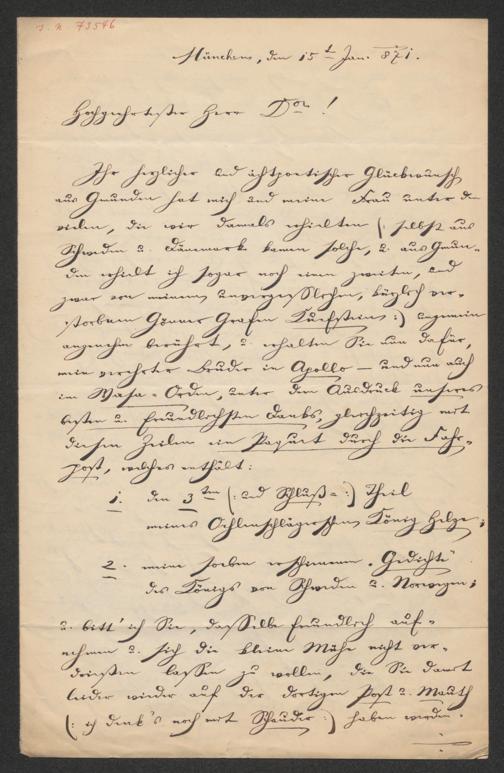 J. N. 73546
München, den 15t Jan. 871.
Hochgeehrtester Herr Dor!
Ihr herzlicher und ächtpoetischer Glückwunsch
aus Gmunden hat mich und meine Frau unter den
vielen, die wir damals erhielten (: selbst aus
Schweden u. Dänemark kamen solche, u. aus Gmun-
den erhielt ich sogar noch einen zweiten, und
zwar von meinem unvergesslichen, kürzlich ver-
storbenen Gönner Grafen Kuefstein :) ungemein
angenehm berührt, u. erhalten Sie nun dafür,
mein verehrter Bruder in Apollo — und nun auch
im Wasa-Orden, unter dem Ausdruck unseres
besten u. freundlichsten Danks, gleichzeitig mit
diesen Zeilen ein Paquet durch die Fahr-
post, welches enthält:
1. den 3ten (: und Schluß= :) Theil
meines Öhlenschläger'schen König Helge;
2. meine soeben erschienenen "Gedichte"
des Königs von Schweden u. Norwegen;
u. bitt' ich Sie, dasselbe freundlich auf-
nehmen u. sich die kleine Mühe nicht ver-
driessen lassen zu wollen, die Sie damit
leider wieder auf der dortigen Post u. Mauth
(: ich denk's noch mit Schauder :) haben werden.